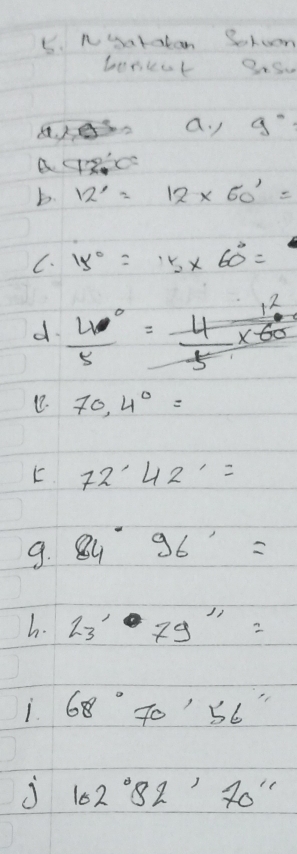 5. Nyatakan Satuan
berikut
a., 9° =
b. 12' = 12 x 60' =
c. 15° = 15 x 60° =
d. 4°/5 = 4/5 x 60 12
e. 70,4° =
72' 42' =
g. 84° 96' =
h. 23' 79" =
i 68° 70' 56"
j 102° 82' 70"